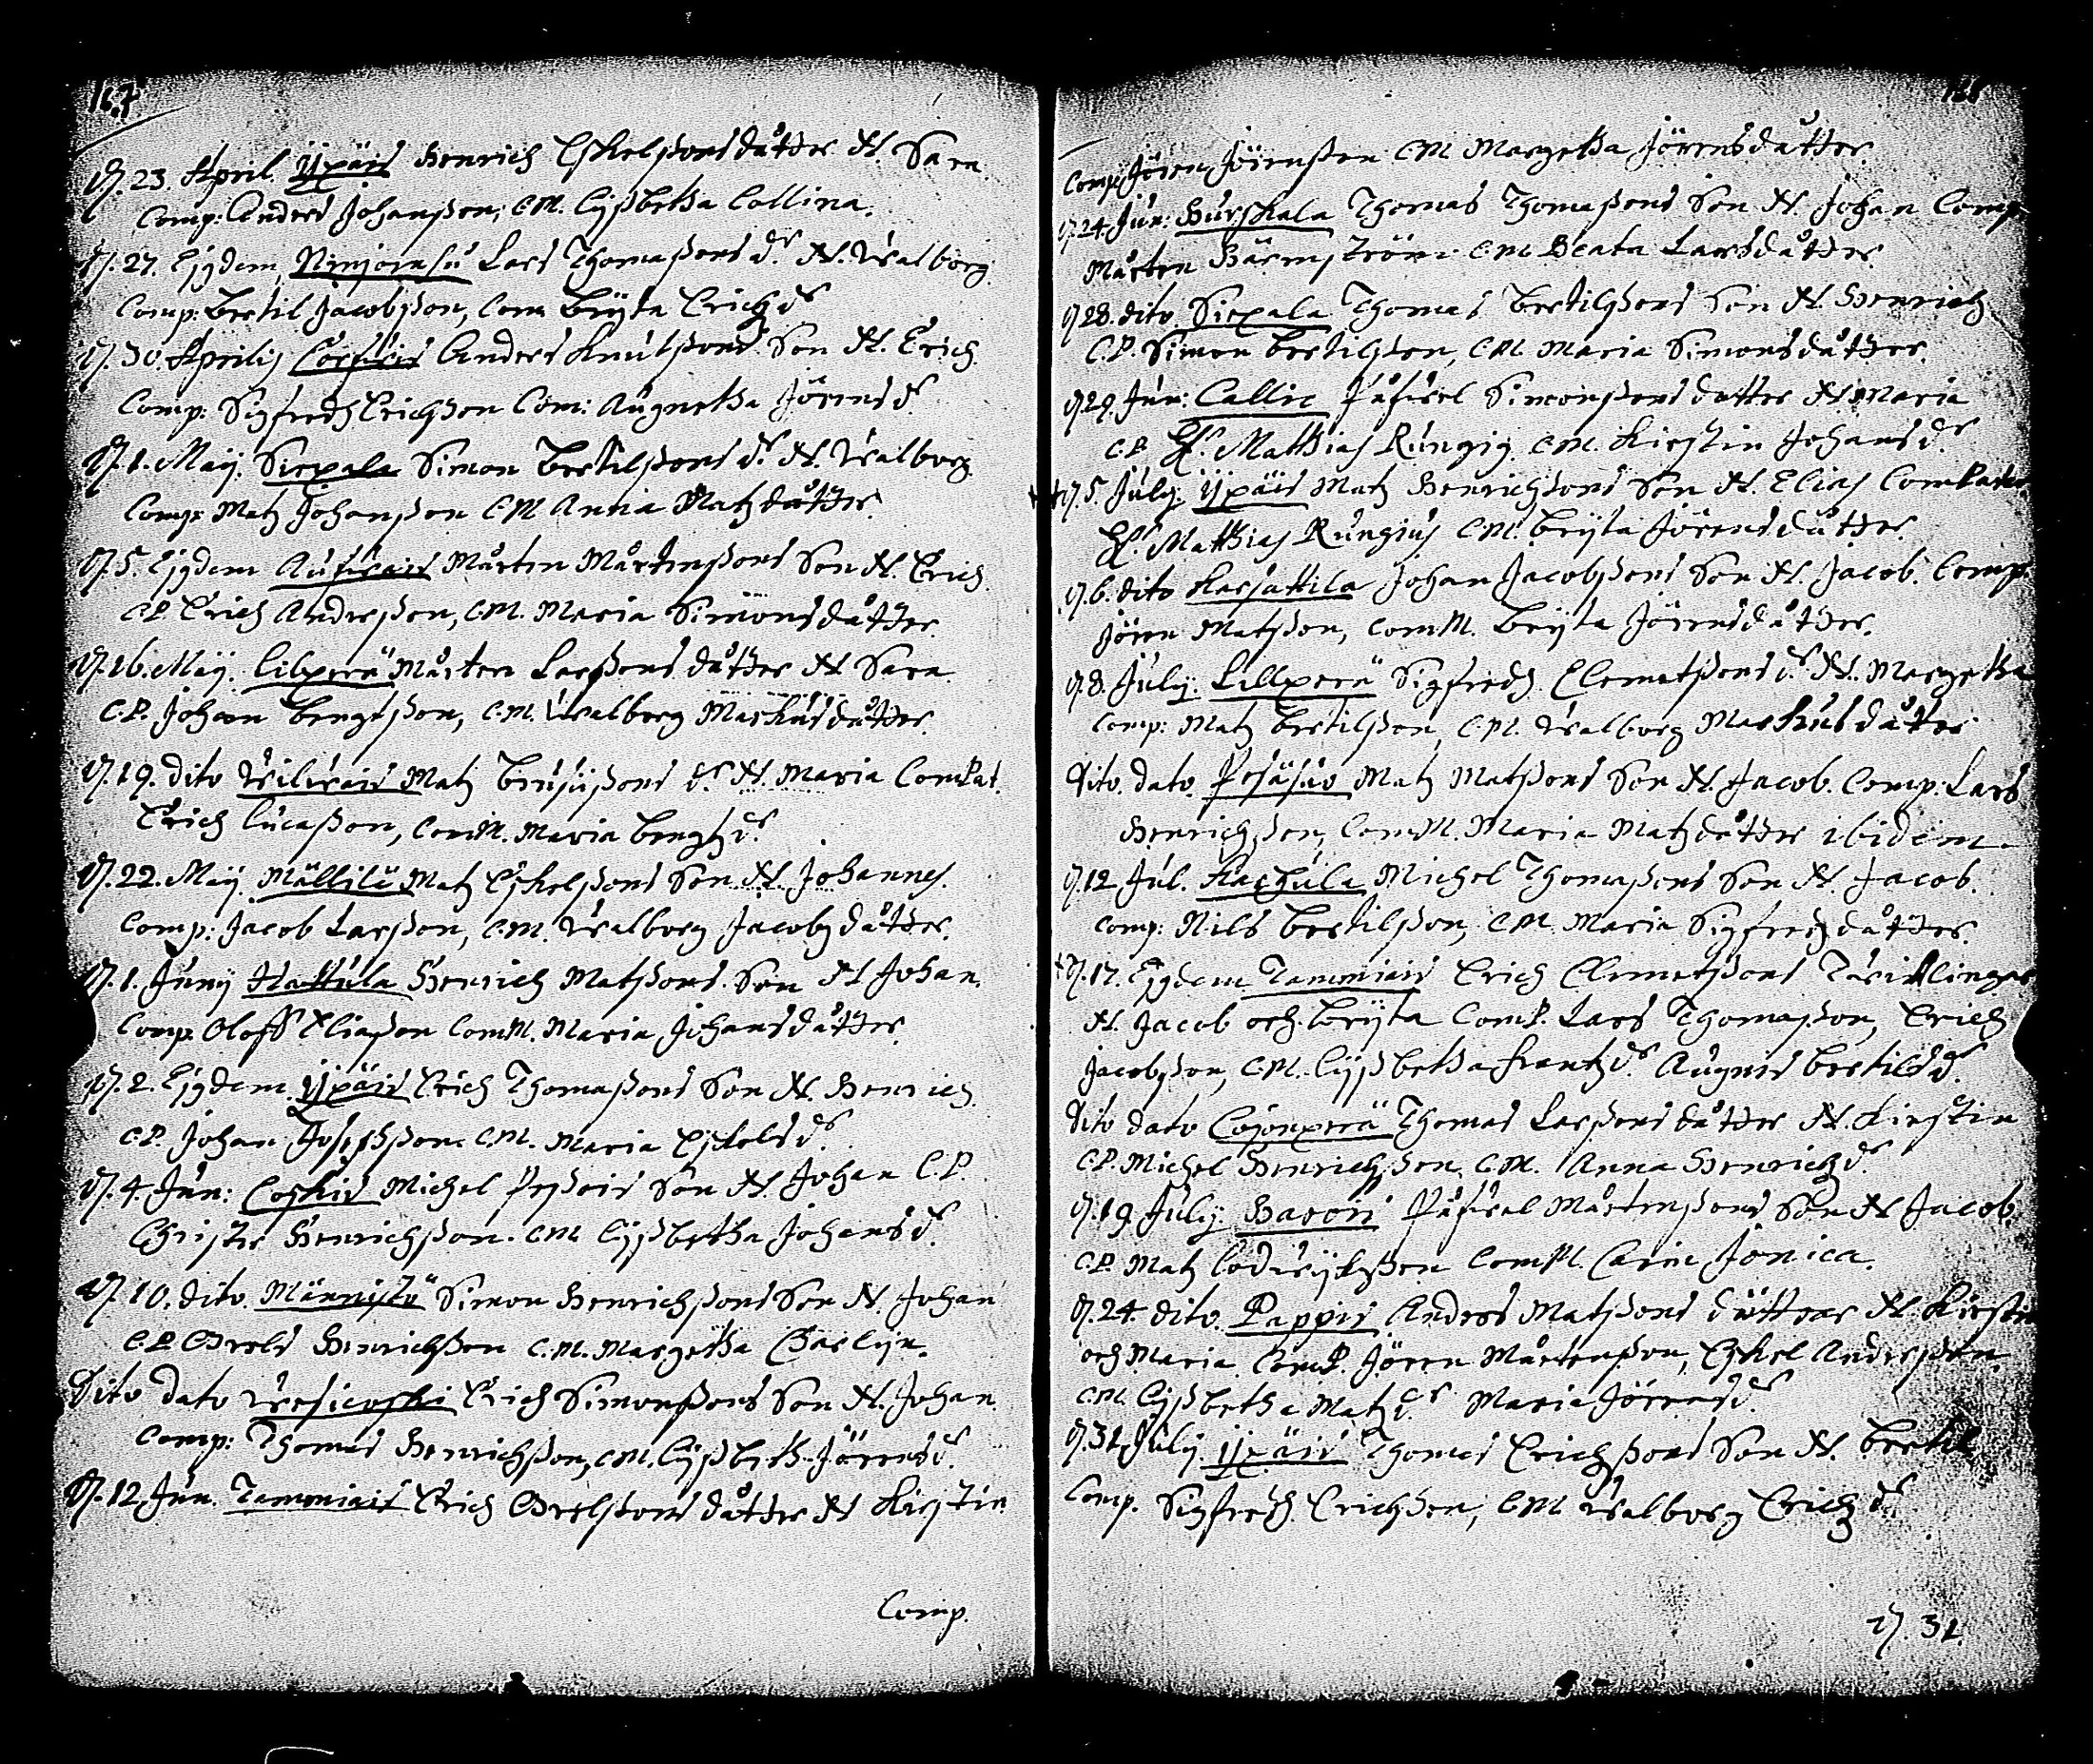 127
D. 23. April. Ypäis Henrich Eskelssons dåtter N. Sara
Comp: Anders Johansson, C.M. Lijsbetha Collina.
D. 27. Ejsdem, Lars Thomassons dr N. Walborg
Comp: Bertil Jacobsson, Com: Brijta Erichzdr
D. 30. Aprilis Anders Knutssons Son N. Erich
Comp: Sigfredh Erichsson Com: Augnetha Jörensdr
D. 1. Maij. Sirpala Simon Bertilssons dr N. Walborg
Comp: Matz Johansson C.M Anna Matzdåtter.
D. 5. Ejsdem Mårten Mårtenssons Son N. Erich
C.P. Erich Andersson, C.M. Maria Simonsdåtter.
D. 16. Maij. Lilperä Mårten Larssons dåtter N Sara
C.P. Johan Bengtsson, C.M. Walborg Markusdåtter.
D. 19. dito Matz dr N. Maria ComPat.
Erich Lucasson, ComM. Maria Bengtzdr
D. 22. Maij Mällilä Matz Eskelssons Son N. Johannes.
Comp: Jacob Larsson, C.M. Walborg Jacobzdåtter.
D. 1. Junij Hattula Henrich Matssons Son N Johan.
Comp. Oloff Eliasson ComM. Maria Johansdåtter.
D. 2. Ejsdem. Ypäis Erich Thomassons Son N. Henrich
C.P. Johan Josephsson C.M. Maria Eskelsdr
D. 4. Jun: Coskis Michel Son N. Johan C.P.
Christer Henrichsson. C.M Lijsbetha Johansdr
D. 10. dito. Männistö Simon Henrichssons Son N. Johan
C.P Grels Henrichsson C.M. Margetha
Dito dato Wesicoski Erich Simonssons Son N. Johan
Comp: Thomas Henrichsson, C.M. Lijsbeth Jörensdr
D. 12 Jun. Tammiais Erich Grelssons dåtter N Kirstin
Comp.
128
Comp Jören Jörensson C M Margetha Jörensdåtter.
D. 24. Jun: Hurskala Thomas Thomassons Son N. Johan Comp.
Mårten Bärnström C.M Beata Larsdåtter.
D 28. dito Sirpala Thomas Bertilssons Son N. Henrich
C.P. Simon Bertilsson, C.M. Maria Simonsdåtter.
D 29. Jun: Callis Påfwel Simonssons dåtter N Maria
C.P. H. Matthias Rungig C.M. Kirstin Johansdr
D. 5. July. Ypäis Matz Henrichssons Son N. Elias ComPater
H. Matthias Rungius C.M. Brijta Jörensdåtter.
D. 6. dito Karjattila Johan Jacobssons Son N. Jacob. Comp:
Jören Matsson, ComM. Brijta Jörensdåtter.
D. 8. July. Lillperä Sigfredh Clemetssons dr N. Margetha
Comp: Matz Bertilsson, C.M. Walborg Markusdåtter
Dito. dato. Matz Matssons Son N. Jacob. Comp: Lars
Henrichsson, ComM. Maria Matzdåtter ibidem.
D. 12 Jul. Karhula Michel Thomassons Son N. Jacob.
Comp: Nils Bertilsson, C.M. Maria Sigfredzdåtter.
D. 17. Ejsdem Tammiais Erich Clemetssons Twillingar
N. Jacob och Brijta ComP. Lars Thomasson, Erich
Jacobsson, C.M. Lijsbetha Frantzdr Augnis Bertilsdr
Dito dato Cojonperä Thomas Larssons dåtter N. Kirstin
C.P. Michel Henrichsson C.M. Anna Henrichzdr
D. 19 July Påfwel Mårtenssons Son N Jacob.
C.P. Matz ComM. Carin Jonica.
D. 24. dito. Pappis Anders Matssons dåttrar N. Kirstin
och Maria ComP. Jören Mårtensson, Eskel Andersson.
C.M. Lijsbetha Matzdr Maria Jörensdr
D. 31 July Ypäis Thomas Erichssons Son N. Bertil
Comp. Sigfredh Erichsson, C M Walborg Erichzdr
D. 31.